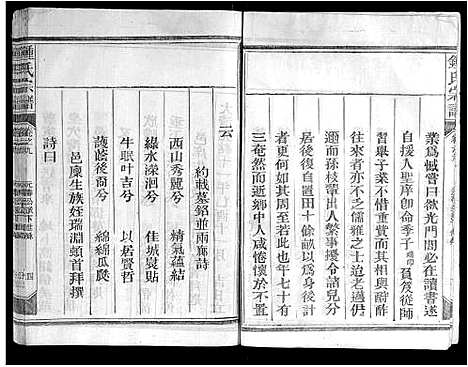 鍾氏宗譜
業爲憾嘗曰欲光門閭必在讀書遂
自援入聖庠卽命季子負笈從師
習舉子業不惜重貲而其與酧酢
往來者亦不乏儒雅之士晚年
適而孫枝蕾出人繁事擾令諸兒分
居後復自置田十餘畝以爲身後計
者更何如其周至也年七十有
三奄然而逝鄉中人咸惓懷於不置
云
約載墓銘並兩廊詩
西山秀麗兮 精氣蘊結
綠水深洄兮 佳城製貼
牛眠叶吉兮 以居賢哲
護蔭後裔兮 綿綿瓜瓞
邑廩生族姪瑞淵頓首拜撰
詩曰
鍾氏宗譜